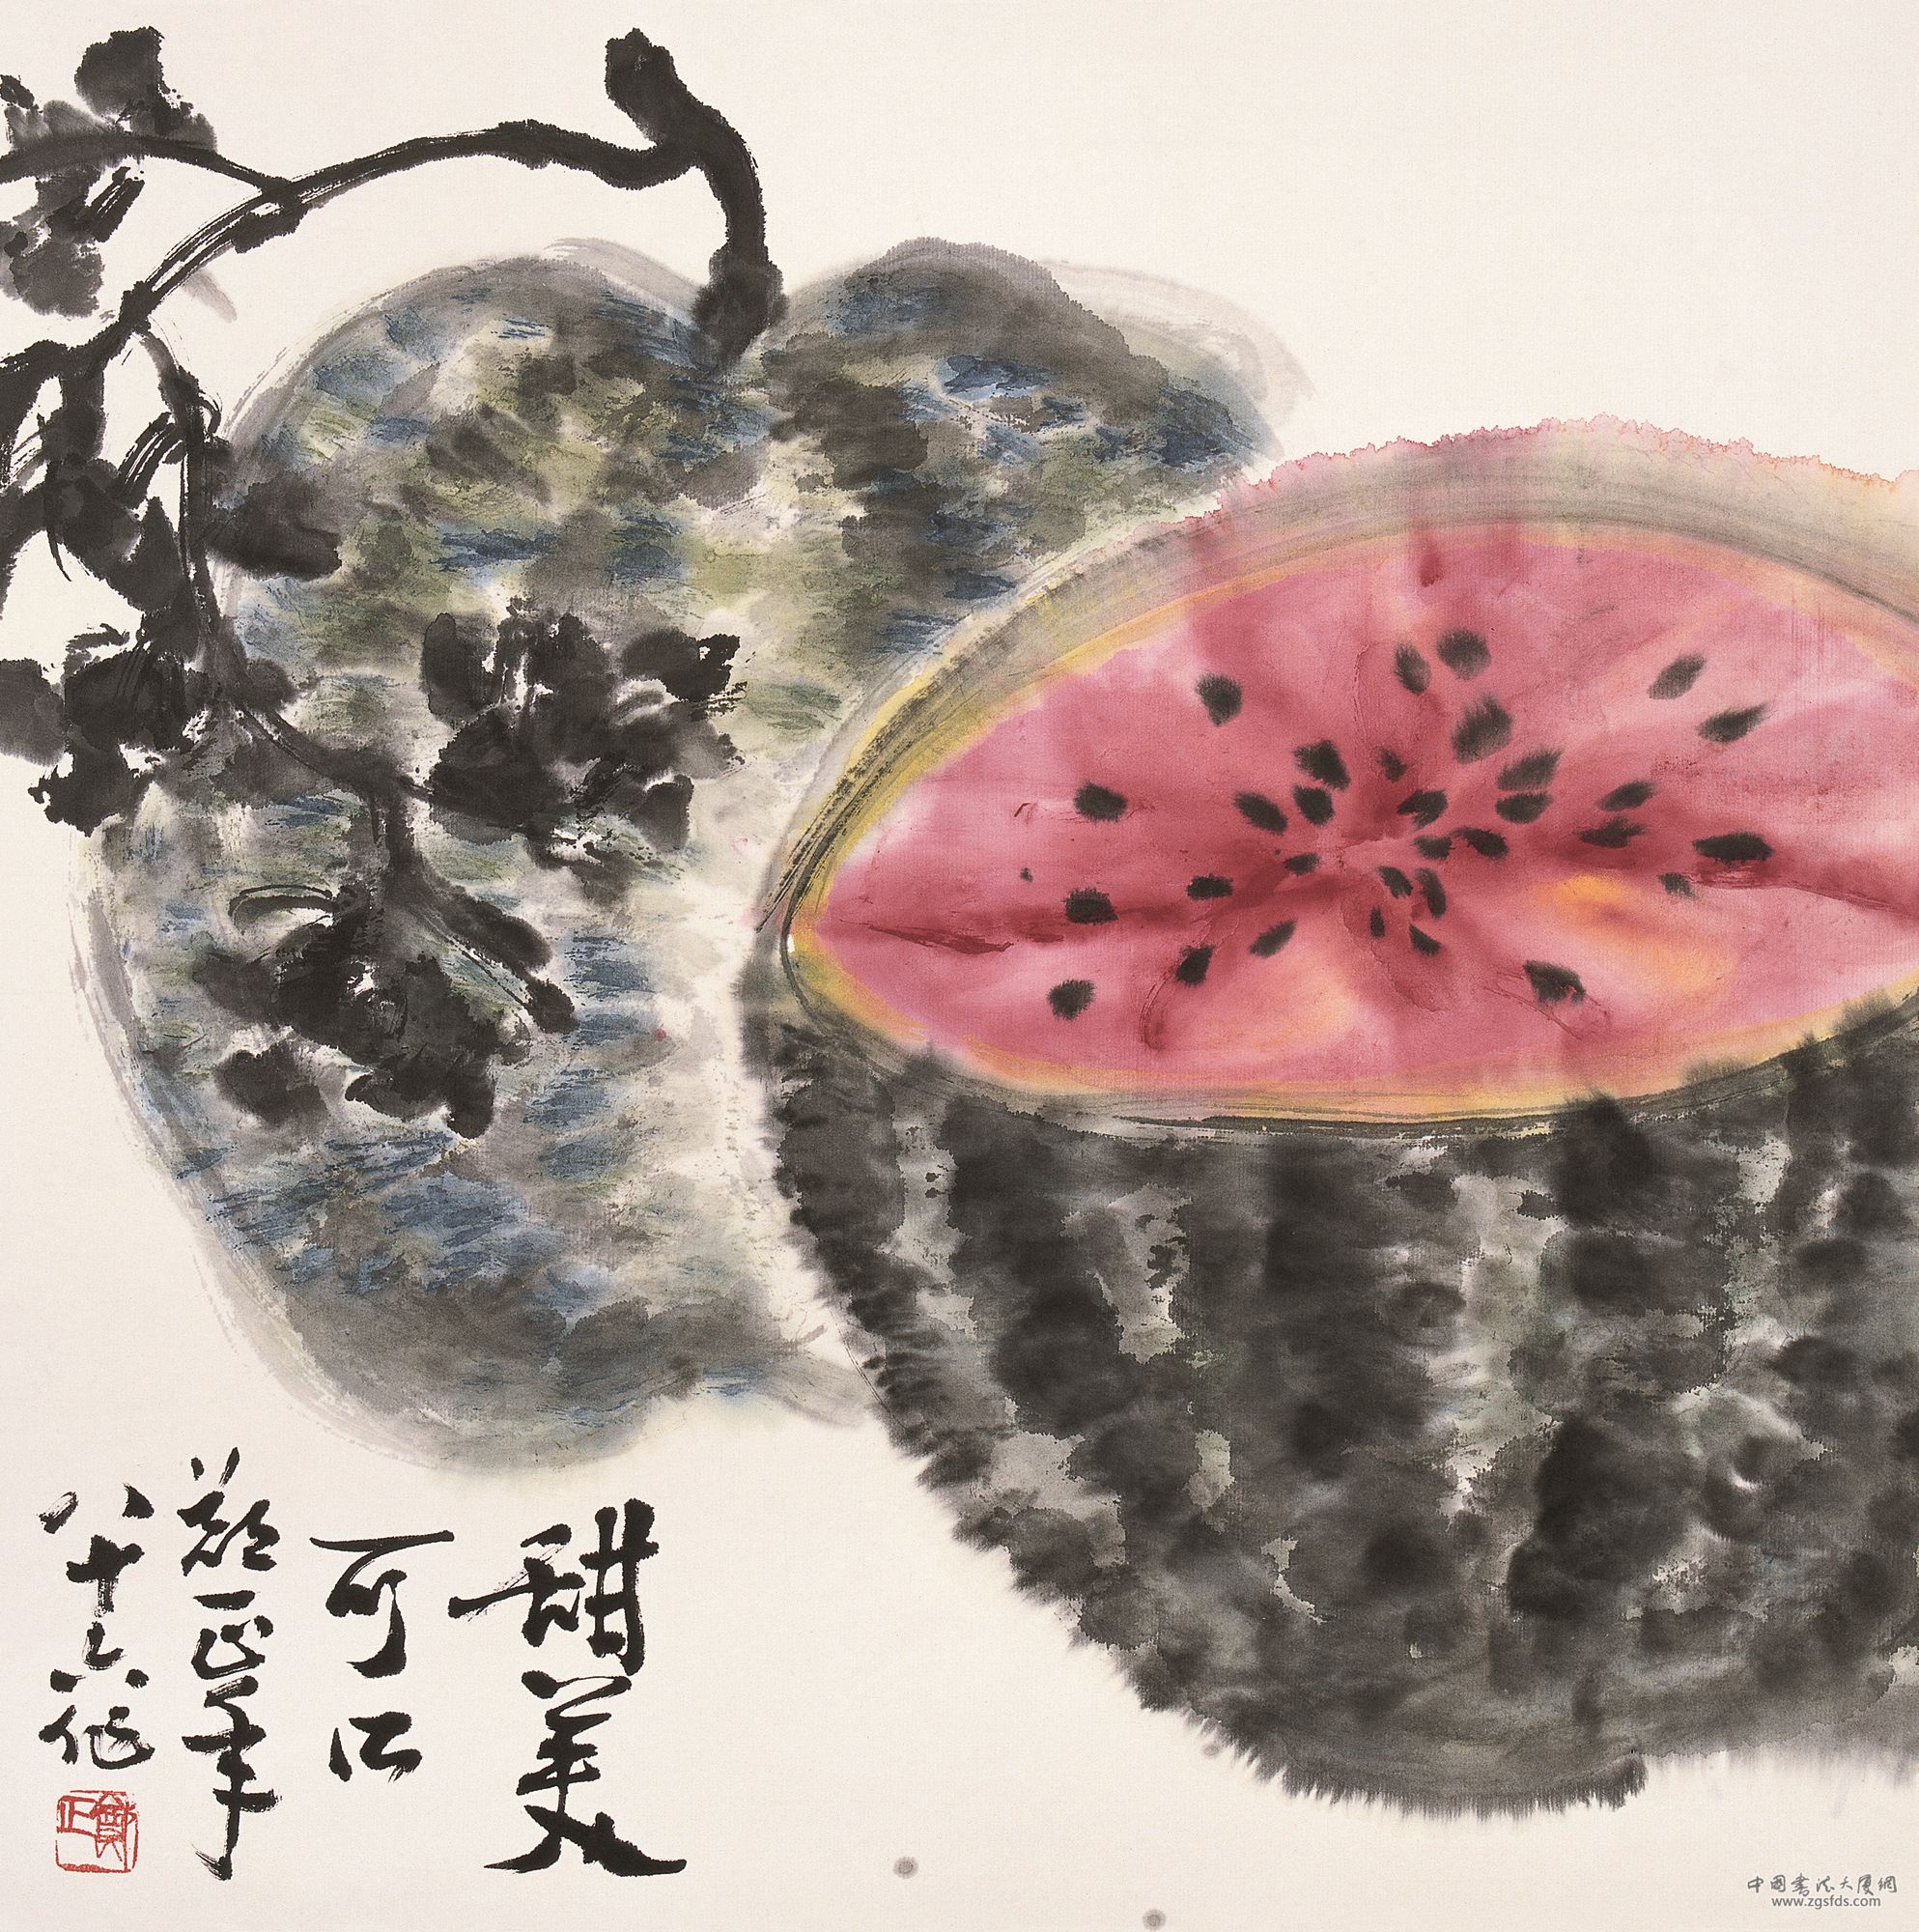 甜美
可口
郑正年
八十六作
鄭正
中国書法大厦網
www.zgsfds.com